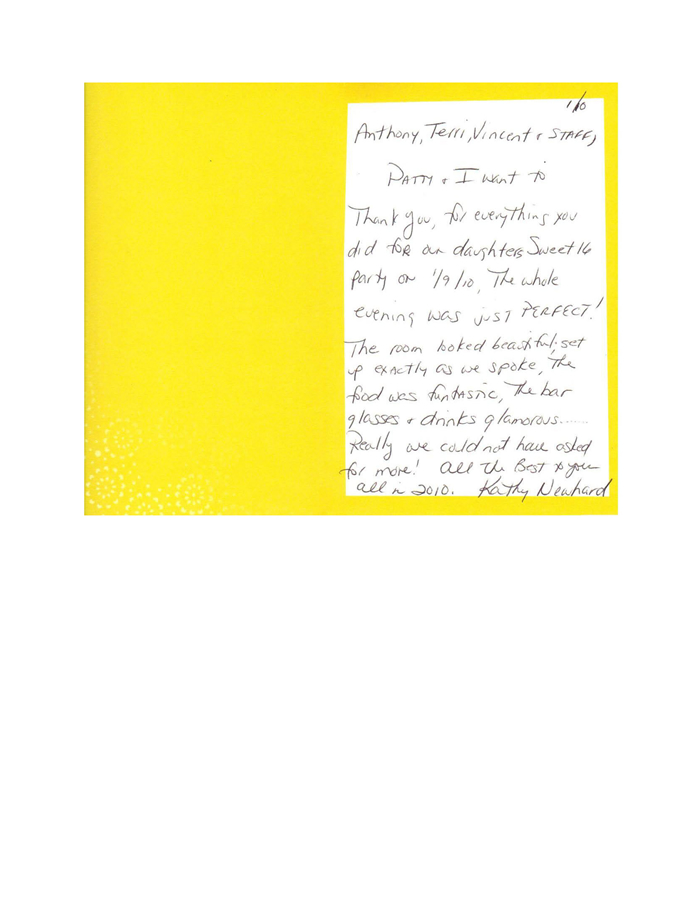 1/10
Anthony, Terri, Vincent & STAFF,
PATTY & I want to
Thank you, for everything you
did for our daughters Sweet 16
party on 1/9/10, The whole
evening was just PERFECT!
The room looked beautiful, set
up exactly as we spoke, The
food was fantastic, The bar
glasses & drinks glamorous......
Really we could not have asked
for more! All the Best to you
all in 2010. Kathy Neuhard